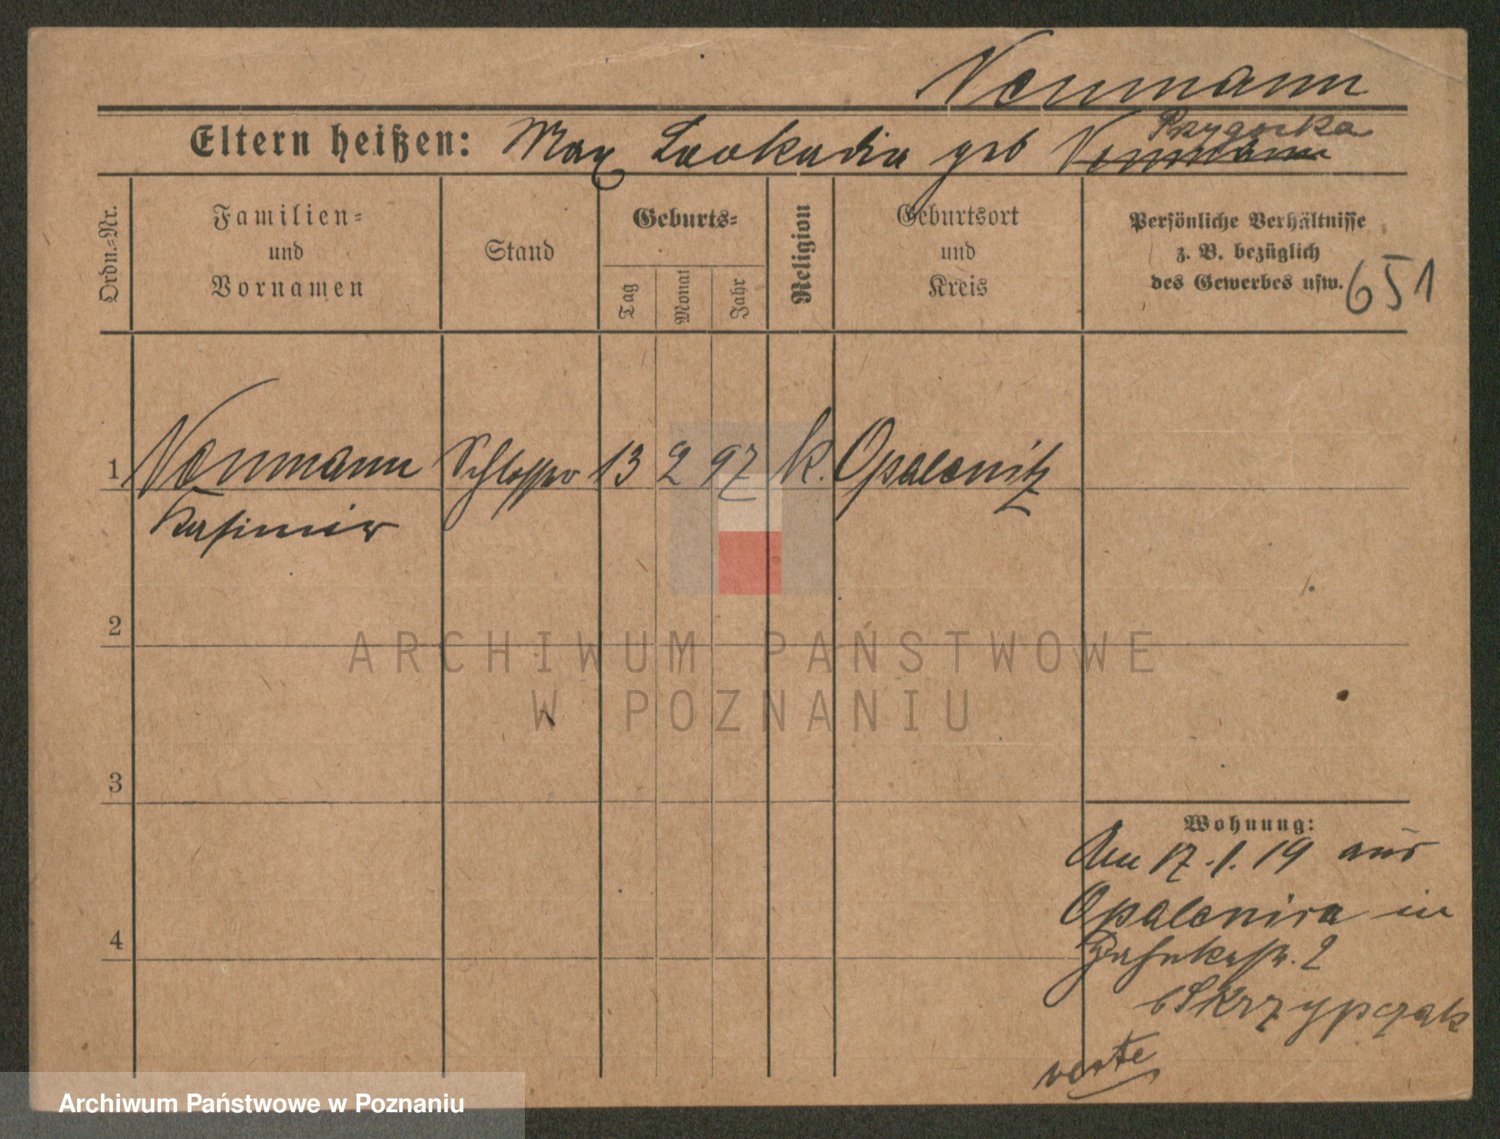 Neumann
Eltern heißen: Max Leokadia geb Neumann Przygocka
Ordn.=Nr.
Familien=
und
Vornamen
Stand
Geburts=
Tag
Monat
Jahr
Religion
Geburtsort
und
Kreis
Persönliche Verhältnisse
z. B. bezüglich
des Gewerbes usw.
651
1 Neumann Schlosser 13 2 97 k. Opalenitz
Kasimir
2
3
4
ARCHIWUM PAŃSTWOWE
W POZNANIU
Wohnung:
Am 17.1.19 aus
Opalenica in
2
b Skrzypczak
verte
Archiwum Państwowe w Poznaniu